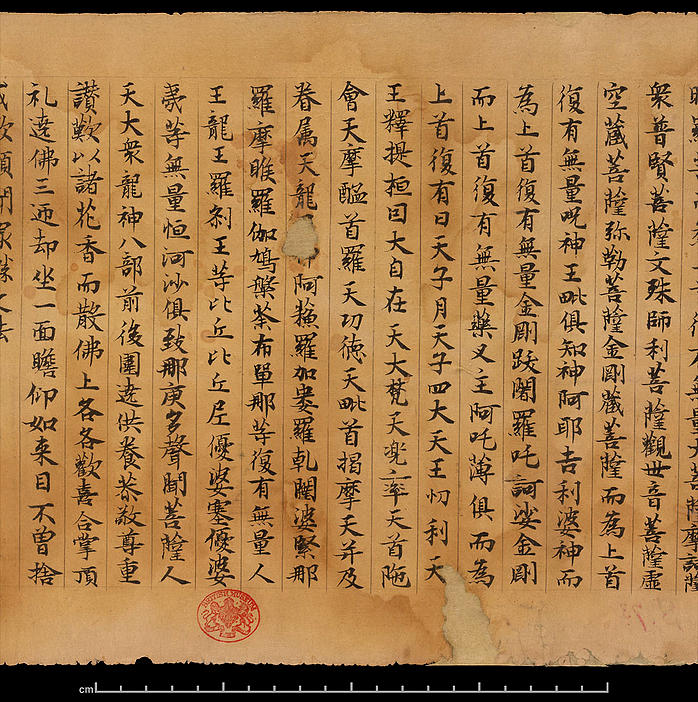 衆普賢菩薩文殊師利菩薩觀世音菩薩虛
空藏菩薩弥勒菩薩金剛藏菩薩而為上首
復有無量呪神王毗俱知神阿耶吉利婆神而
為上首復有無量金剛跋闍羅吒訶娑金剛
而上首復有無量藥叉主阿吒薄俱而為
上首復有日天子月天子四大天王忉利天
王釋提桓因大自在天大梵天兜率天首陁
會天摩醯首羅天功德天毗首揭摩天并及
眷属天龍 阿蘓羅加婁羅乹闥婆緊那
羅摩睺羅伽鳩槃荼布單那等復有無量人
王龍王羅剎王等比丘比丘尼優婆塞優婆
夷等無量恒河沙俱致那庾多聲聞菩薩人
天大衆龍神八部前後圍遶供養恭敬尊重
讃歎以諸花香而散佛上各各歡喜合掌頂
礼遶佛三迊却坐一面瞻仰如来目不曽捨
BRITISH MUSEUM
cm